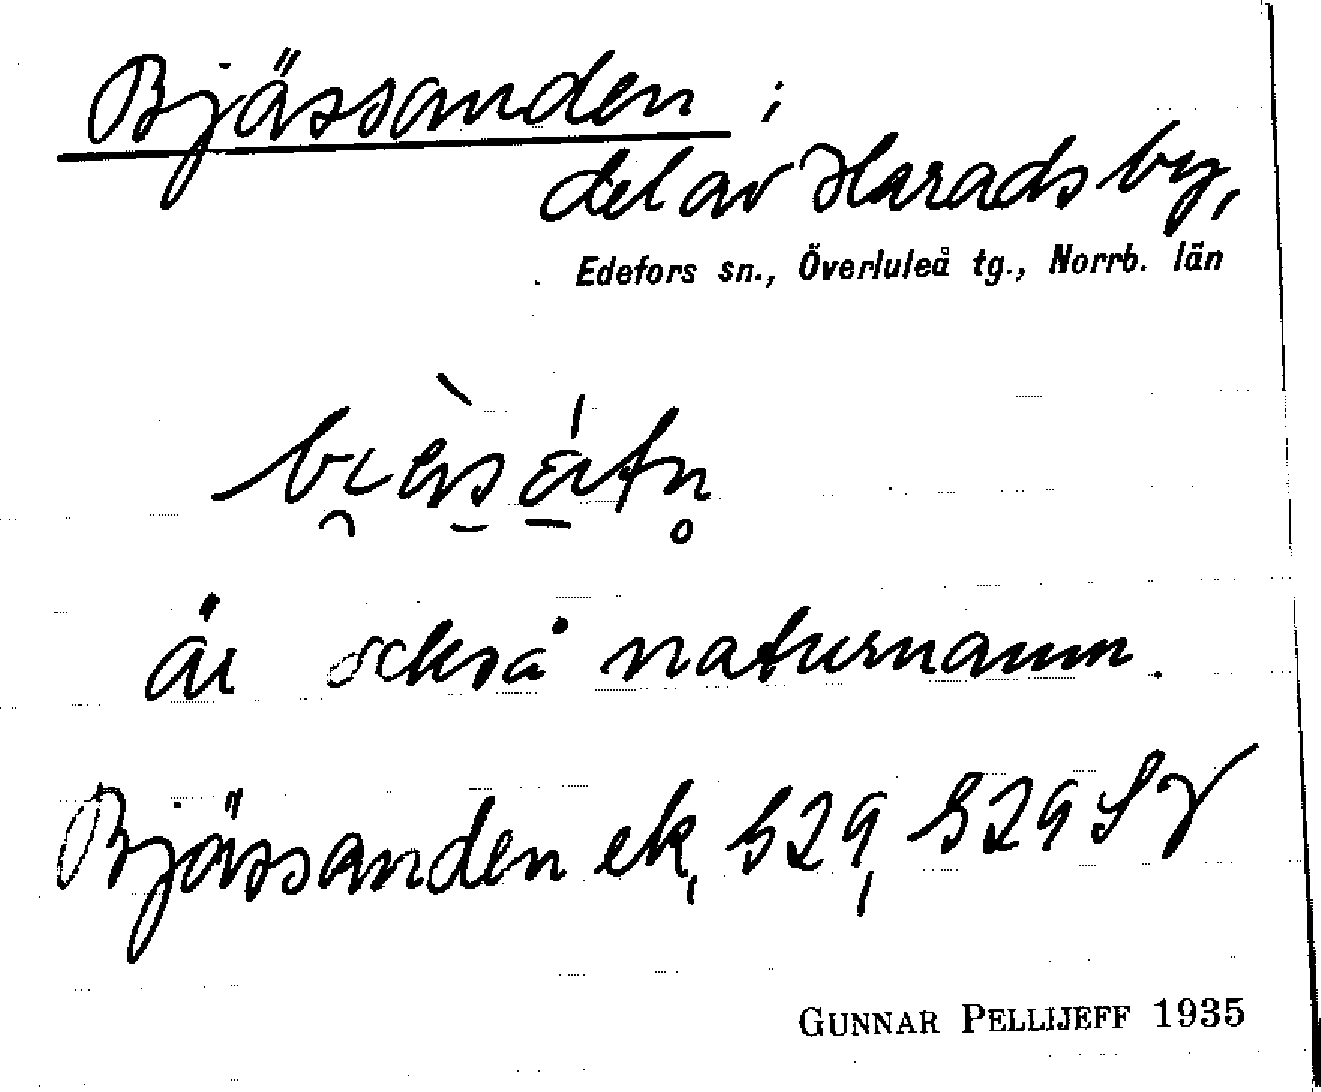 Bjässanden ;
del av Harads by,
Edefors sn., Överluleå tg., Norrb. län
är också naturnamn.
Bjässanden ek, 529, 529 SV
GUNNAR PELLIJEFF 1935